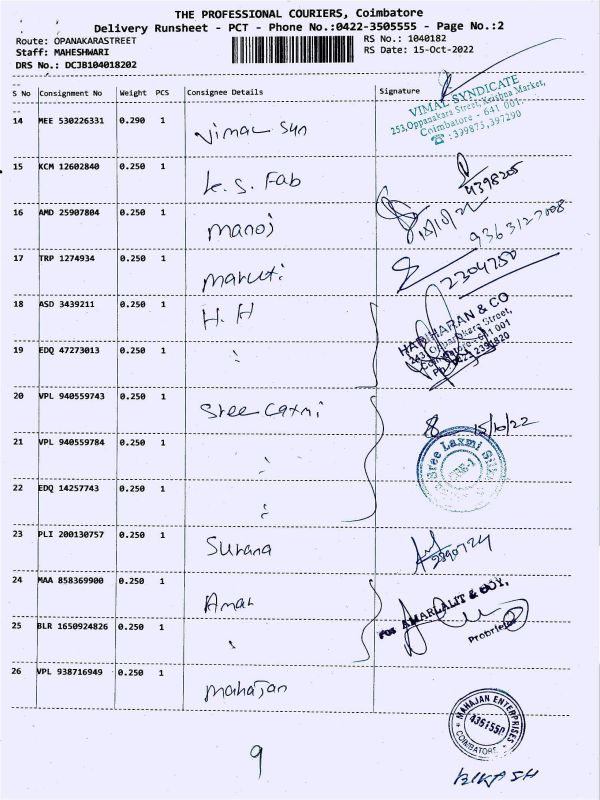 THE PROFESSIONAL COURIERS, Coimbatore
Delivery Runsheet - PCT - Phone No.:0422-3505555 - Page No.:2
Route: OPANAKARASTREET RS No.: 1040182
Staff: MAHESHWARI RS Date: 15-Oct-2022
DRS No.: DCJB104018202
S No Consignment No Weight PCS Consignee Details Signature
VIMAL SYNDICATE
253,Oppanakara Street, Krishna Market,
Coimbatore - 641 001.
☎ : 399875,397290
14 MEE 530226331 0.290 1 Vimal Sun
15 KCM 12602840 0.250 1 K. S. Fab 4398205
16 AMD 25907804 0.250 1 Manoj 15/10/22 9363127008
17 TRP 1274934 0.250 1 Maruti 2304750
18 ASD 3439211 0.250 1 H. H
HARIHARAN & CO
Street,
Coimbatore - 641 001
19 EDQ 47273013 0.250 1 "
20 VPL 940559743 0.250 1 Sree Laxmi 15/10/22
21 VPL 940559784 0.250 1 "
Sree Laxmi Silks
22 EDQ 14257743 0.250 1 "
23 PLI 200130757 0.250 1 Surana
24 MAA 858369900 0.250 1 Amar
For AMARLALIT & GUY,
Proprietor
25 BLR 1650924826 0.250 1 "
26 VPL 938716949 0.250 1 Mahajan
MAHAJAN ENTERPRISES
COIMBATORE
9
BIKASH